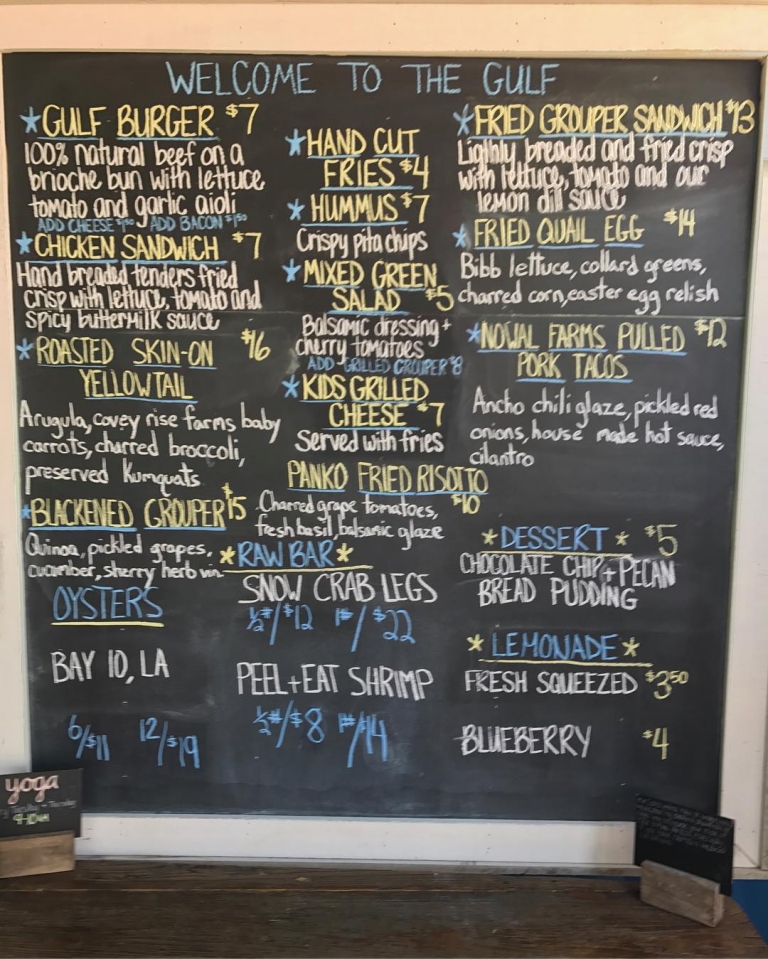 WELCOME TO THE GULF
GULF BURGER $7
100% natural beef on a
brioche bun with lettuce,
tomato and garlic aioli
ADD CHEESE $1.50 ADD BACON $1.50
CHICKEN SANDWICH $7
Hand breaded tenders fried
crisp with lettuce, tomato and
spicy buttermilk sauce
ROASTED SKIN-ON $16
YELLOWTAIL
Arugula, covey rise farms baby
carrots, charred broccoli,
preserved Kumquats
BLACKENED GROUPER $15
Quinoa, pickled grapes,
cucumber, sherry herb vin.
OYSTERS
BAY 10, LA
6/$11 12/$19
HAND CUT
FRIES $4
HUMMUS $7
Crispy pita chips
MIXED GREEN
SALAD $5
Balsamic dressing +
cherry tomatoes
ADD GRILLED GROUPER $8
KIDS GRILLED
CHEESE $7
Served with fries
PANKO FRIED RISOTTO
$10
Charred grape tomatoes,
fresh basil, balsamic glaze
RAW BAR
SNOW CRAB LEGS
½#/$12 1#/$22
PEEL+EAT SHRIMP
½#/$8 1#/$14
FRIED GROUPER SANDWICH $13
Lighly breaded and fried crisp
with lettuce, tomato and our
lemon dill sauce
FRIED QUAIL EGG $14
Bibb lettuce, collard greens,
charred corn, easter egg relish
NOWAL FARMS PULLED $12
PORK TACOS
Ancho chili glaze, pickled red
onions, house made hot sauce,
cilantro
DESSERT $5
CHOCOLATE CHIP + PECAN
BREAD PUDDING
LEMONADE
FRESH SQUEEZED $3.50
BLUEBERRY $4
yoga